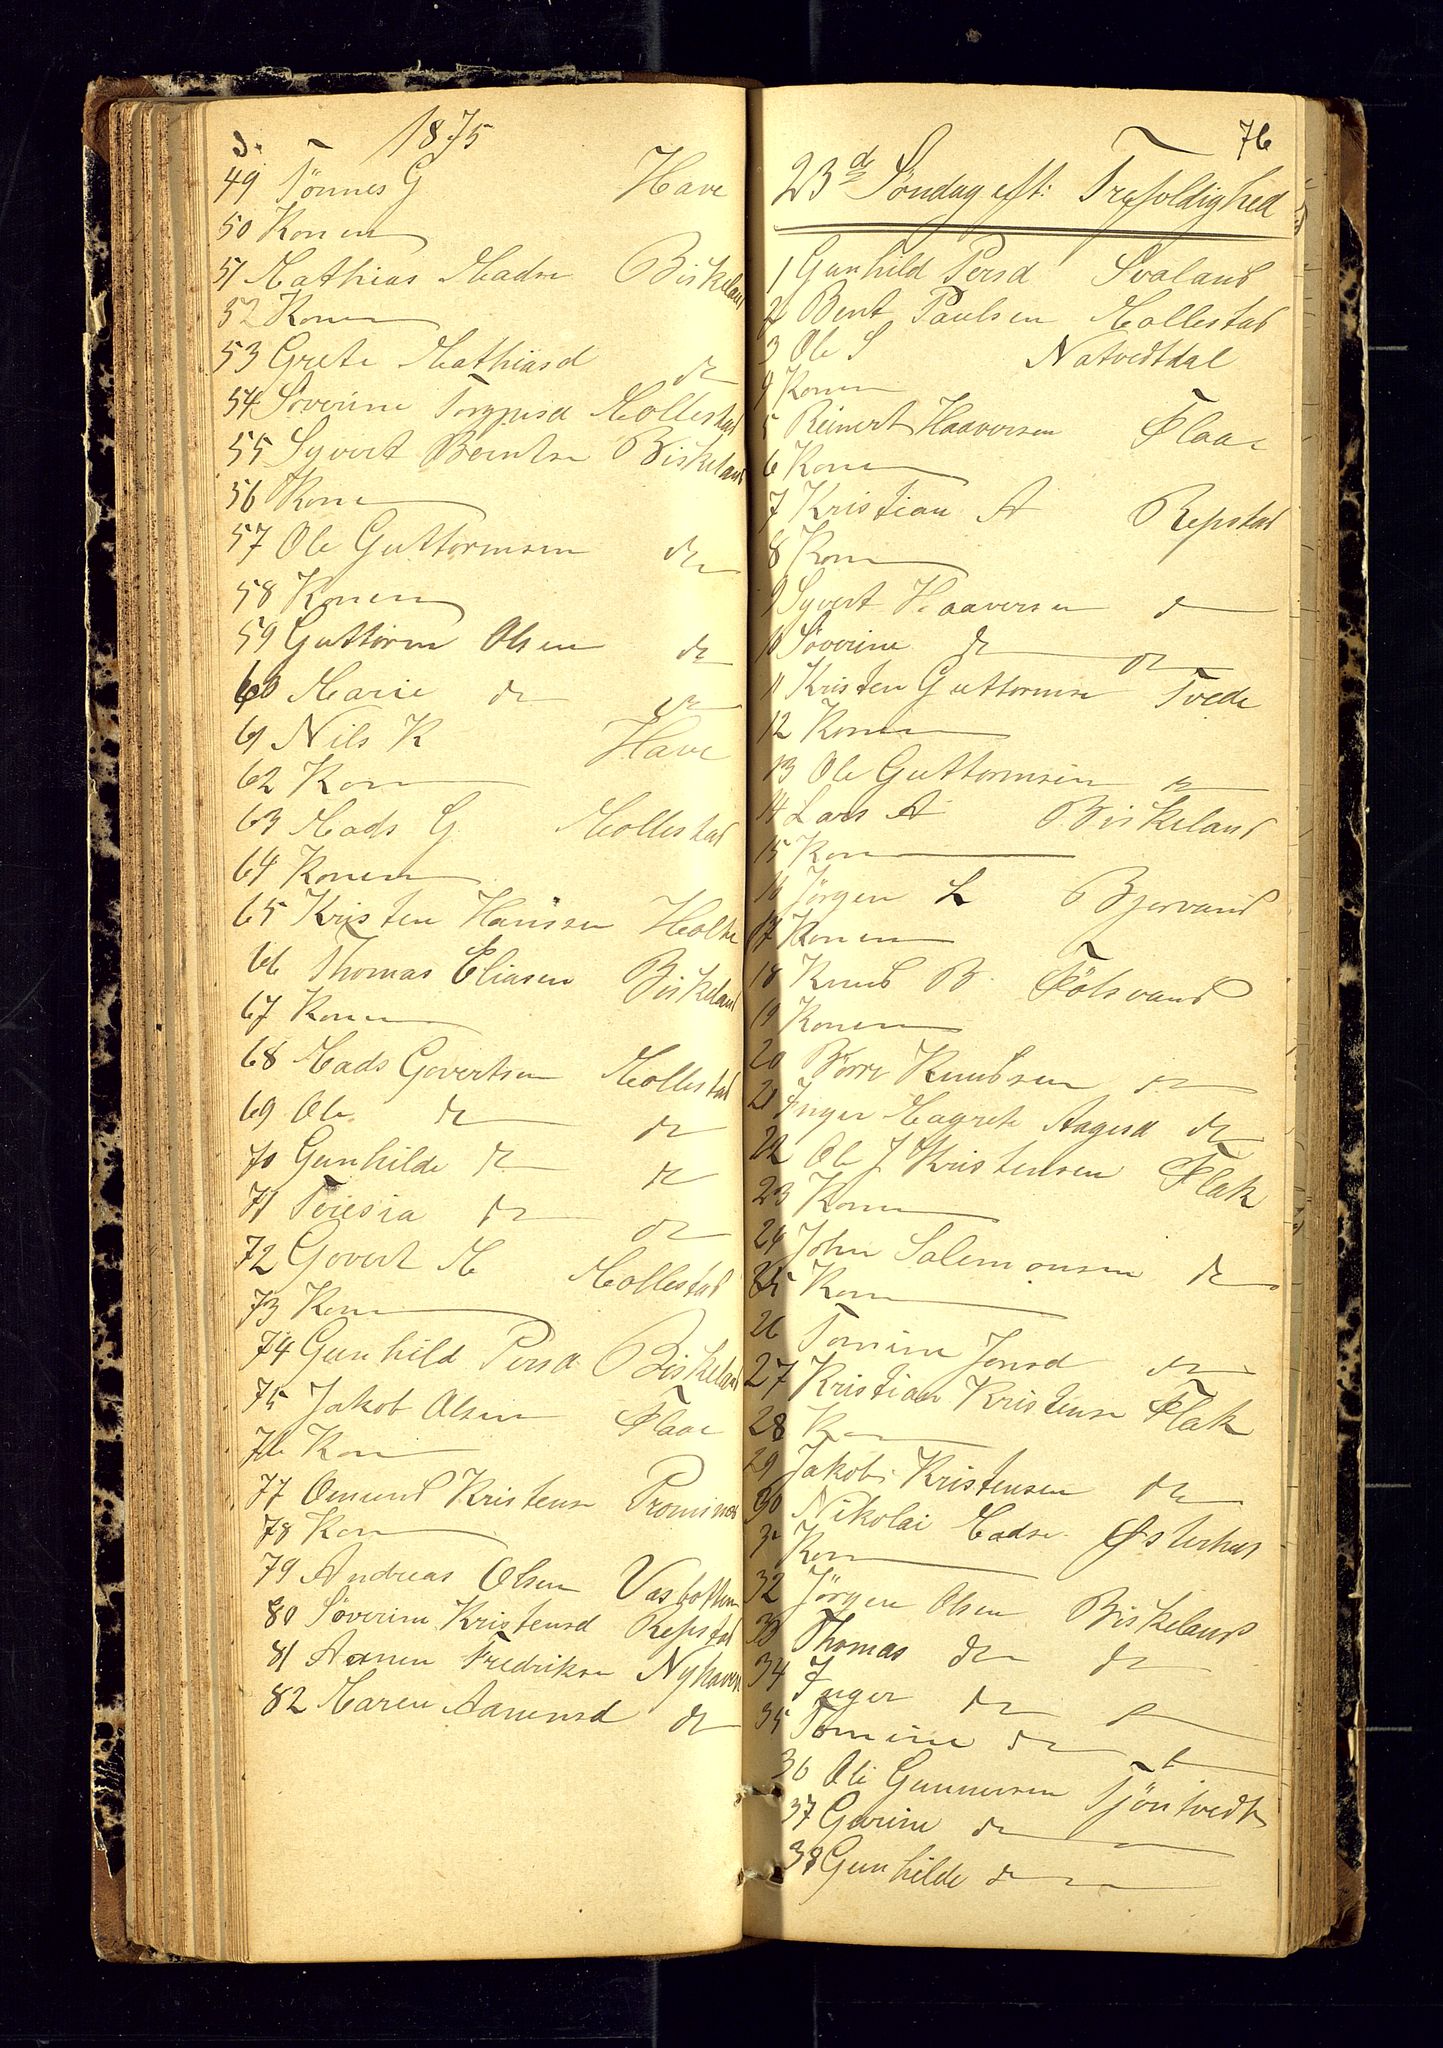 1875
49 Tønnes G Have
50 Konen
51 Mathias Madsn Biskeland
52 Konen
53 Grete Mathiasd do
54 Søverine Torgjusd Mollestad
55 Syvert Berntsn Biskeland
56 Konen
57 Ole Guttormsen do
58 Konen
59 Guttorm Olsen do
60 Marie do do
61 Nils K Have
62 Kon
63 Mads G Mollestad
64 Konen
65 Kristen Hanssen Holte
66 Thomas Eliasen Biskeland
67 Konen
68 Mads Govertsen Mollestad
69 Ole do do
70 Gunhilde do do
71 Teresia do do
72 Govert M Mollestad
73 Kon
74 Gunhild Persd Biskeland
75 Jakob Olsen Flaae
76 Kon
77 Omund Kristensn
78 Kon
79 Andreas Olsen Vasbotten
80 Søverine Kristensd Repstad
81 Aanen Fredriksn Nyhaven
82 Maren Aanensd do
76
23de Søndag eft: Trefoldighed
1 Gunhild Persd Svaland
2 Bent Paulsen Mollestad
3 Ole S Natvedtdal
4 Konen
5 Reinert Haaversen Flaae
6 Konen
7 Kristian A Repstad
8 Kon
9 Syvert Haaversen do
10 Søverine do do
11 Kristen Guttormsn Tvede
12 Konen
13 Ole Guttormsen do
14 Lars A Biskeland
15 Kon
16 Jørgen L Bjorvand
17 Konen
18 Knud B. Følsvand
19 Konen
20 Børre Knudsen do
21 Inger Magrete Aagesd do
22 Ole J Kristensen Flak
23 Konen
24 John Salemonsen do
25 Kon
26 Tomine Jonsd do
27 Kristian Kristensn Flak
28 Kon
29 Jakob Kristensen do
30 Nikolai Madsn Østerhus
31 Kon
32 Jørgen Olsen Biskeland
33 Thomas do do
34 Inger do do
35 Tomine do do
36 Ole Gunnersen Tjøntvedt
37 Gurine do
38 Gunhilde do